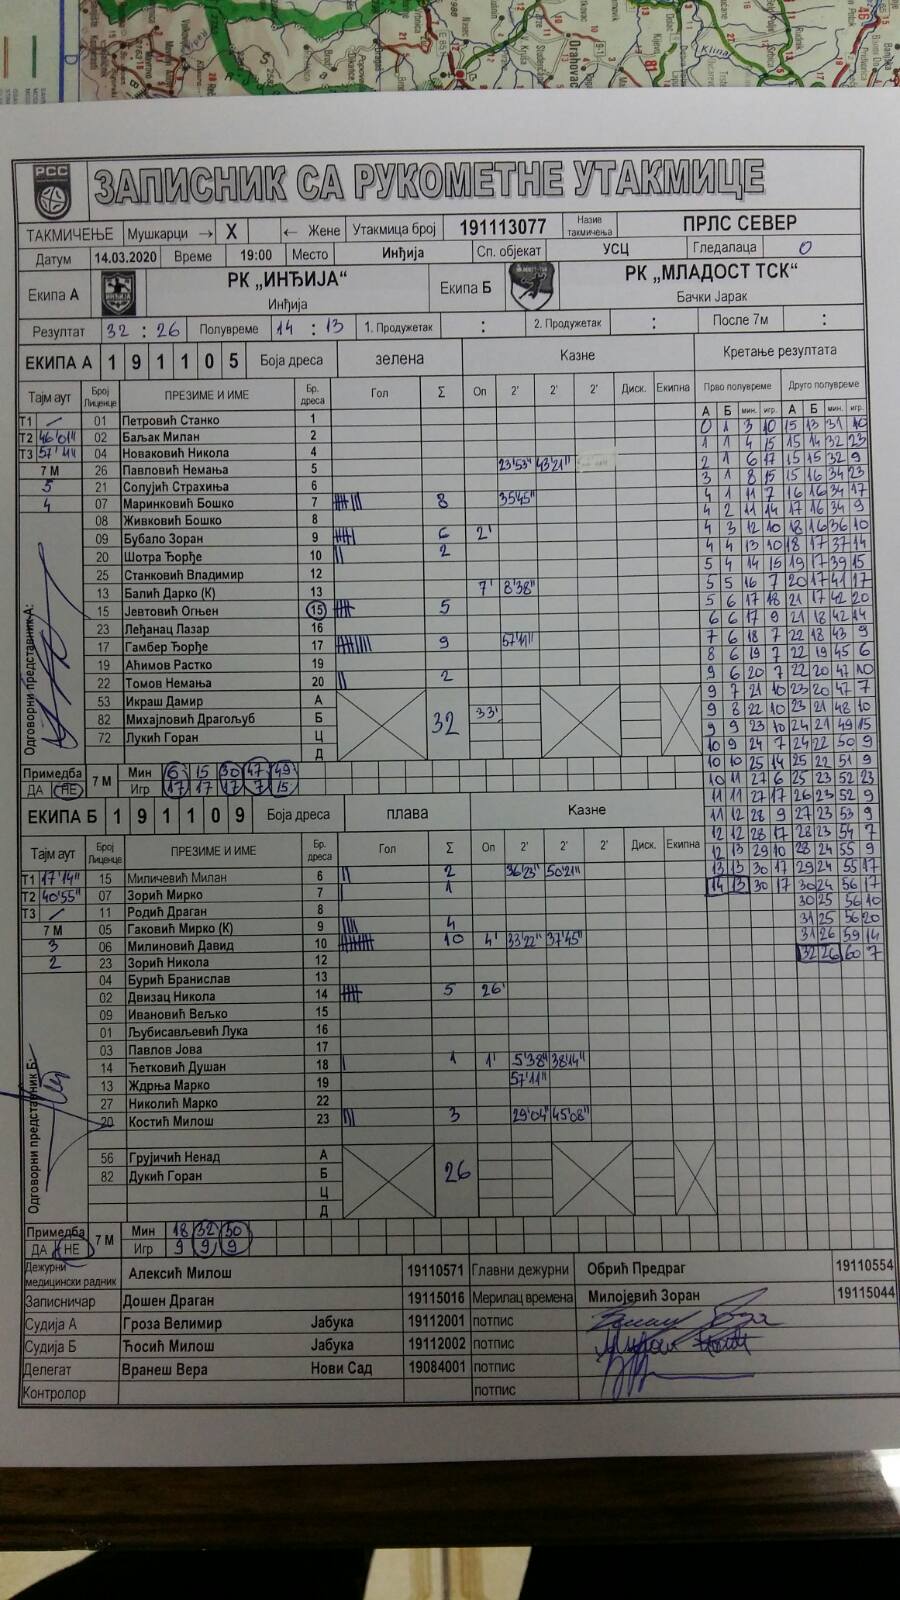 РСС
ЗАПИСНИК СА РУКОМЕТНЕ УТАКМИЦЕ
ТАКМИЧЕЊЕ Мушкарци → X ← Жене Утакмица број 191113077 Назив такмичења ПРЛС СЕВЕР
Датум 14.03.2020 Време 19:00 Место Инђија Сп. објекат УСЦ Гледалаца 0
Екипа А РК „ИНЂИЈА“ Инђија Екипа Б РК „МЛАДОСТ ТСК“ Бачки Јарак
Резултат 32 : 26 Полувреме 14 : 13 1. Продужетак : 2. Продужетак : После 7м :
ЕКИПА А 1 9 1 1 0 5 Боја дреса зелена Казне Кретање резултата
Тајм аут Број Лиценце ПРЕЗИМЕ И ИМЕ Бр. дреса Гол Σ Оп 2' 2' 2' Диск. Екипна Прво полувреме Друго полувреме
А Б мин. игр. А Б мин. игр.
Т1 / 01 Петровић Станко 1
Т2 46'01" 02 Баљак Милан 2
Т3 57'41" 04 Новаковић Никола 4
7 М 26 Павловић Немања 5 23'53" 43'21"
5 21 Солујић Страхиња 6
4 07 Маринковић Бошко 7 8 35'45"
08 Живковић Бошко 8
09 Бубало Зоран 9 6 2'
20 Шотра Ђорђе 10 2
25 Станковић Владимир 12
13 Балић Дарко (К) 13 7' 8'38"
15 Јевтовић Огњен 15 5
23 Леђанац Лазар 16
17 Гамбер Ђорђе 17 9 57'41"
19 Аћимов Растко 19
22 Томов Немања 20 2
53 Икраш Дамир А
82 Михајловић Драгољуб Б 32 33'
72 Лукић Горан Ц
Д
Одговорни представник А:
Примедба ДА НЕ 7 М Мин 6 15 30 47 49
Игр 17 17 17 7 15
0 1 3 10 15 13 31 10
1 1 4 15 15 14 32 23
2 1 6 17 15 15 32 9
3 1 8 15 15 16 34 23
4 1 11 7 16 16 34 17
4 2 11 14 17 16 34 9
4 3 12 10 18 16 36 10
4 4 13 10 18 17 37 14
5 4 14 15 19 17 39 15
5 5 16 7 20 17 41 17
5 6 17 18 21 17 42 20
6 6 17 9 21 18 42 14
7 6 18 7 22 18 43 9
8 6 19 7 22 19 45 6
9 6 20 7 22 20 47 10
9 7 21 10 23 20 47 7
9 8 22 10 23 21 48 10
9 9 23 10 24 21 49 15
10 9 24 7 24 22 50 9
10 10 25 14 25 22 51 9
10 11 27 6 25 23 52 23
11 11 27 17 26 23 52 9
11 12 28 9 27 23 53 9
12 12 28 17 28 23 54 7
12 13 29 10 28 24 55 9
13 13 30 17 29 24 55 17
14 13 30 17 30 24 56 17
30 25 56 10
31 25 56 20
31 26 59 14
32 26 60 7
ЕКИПА Б 1 9 1 1 0 9 Боја дреса плава Казне
Тајм аут Број Лиценце ПРЕЗИМЕ И ИМЕ Бр. дреса Гол Σ Оп 2' 2' 2' Диск. Екипна
Т1 17'14" 15 Миличевић Милан 6 2 36'23" 50'21"
Т2 40'55" 07 Зорић Мирко 7 1
Т3 / 11 Родић Драган 8
7 М 05 Гаковић Мирко (К) 9 4
3 06 Милиновић Давид 10 10 4' 33'22" 37'45"
2 23 Зорић Никола 12
04 Бурић Бранислав 13
02 Двизац Никола 14 5 26'
09 Ивановић Вељко 15
01 Љубисављевић Лука 16
03 Павлов Јова 17
14 Ћетковић Душан 18 1 1' 5'38" 38'14"
13 Ждрња Марко 19 57'11"
27 Николић Марко 22
20 Костић Милош 23 3 29'04" 45'08"
56 Грујичић Ненад А
82 Дукић Горан Б 26
Ц
Д
Одговорни представник Б:
Примедба ДА НЕ 7 М Мин 18 32 50
Игр 9 9 9
Дежурни медицински радник Алексић Милош 19110571 Главни дежурни Обрић Предраг 19110554
Записничар Дошен Драган 19115016 Мерилац времена Милојевић Зоран 19115044
Судија А Гроза Велимир Јабука 19112001 потпис
Судија Б Ћосић Милош Јабука 19112002 потпис
Делегат Вранеш Вера Нови Сад 19084001 потпис
Контролор потпис